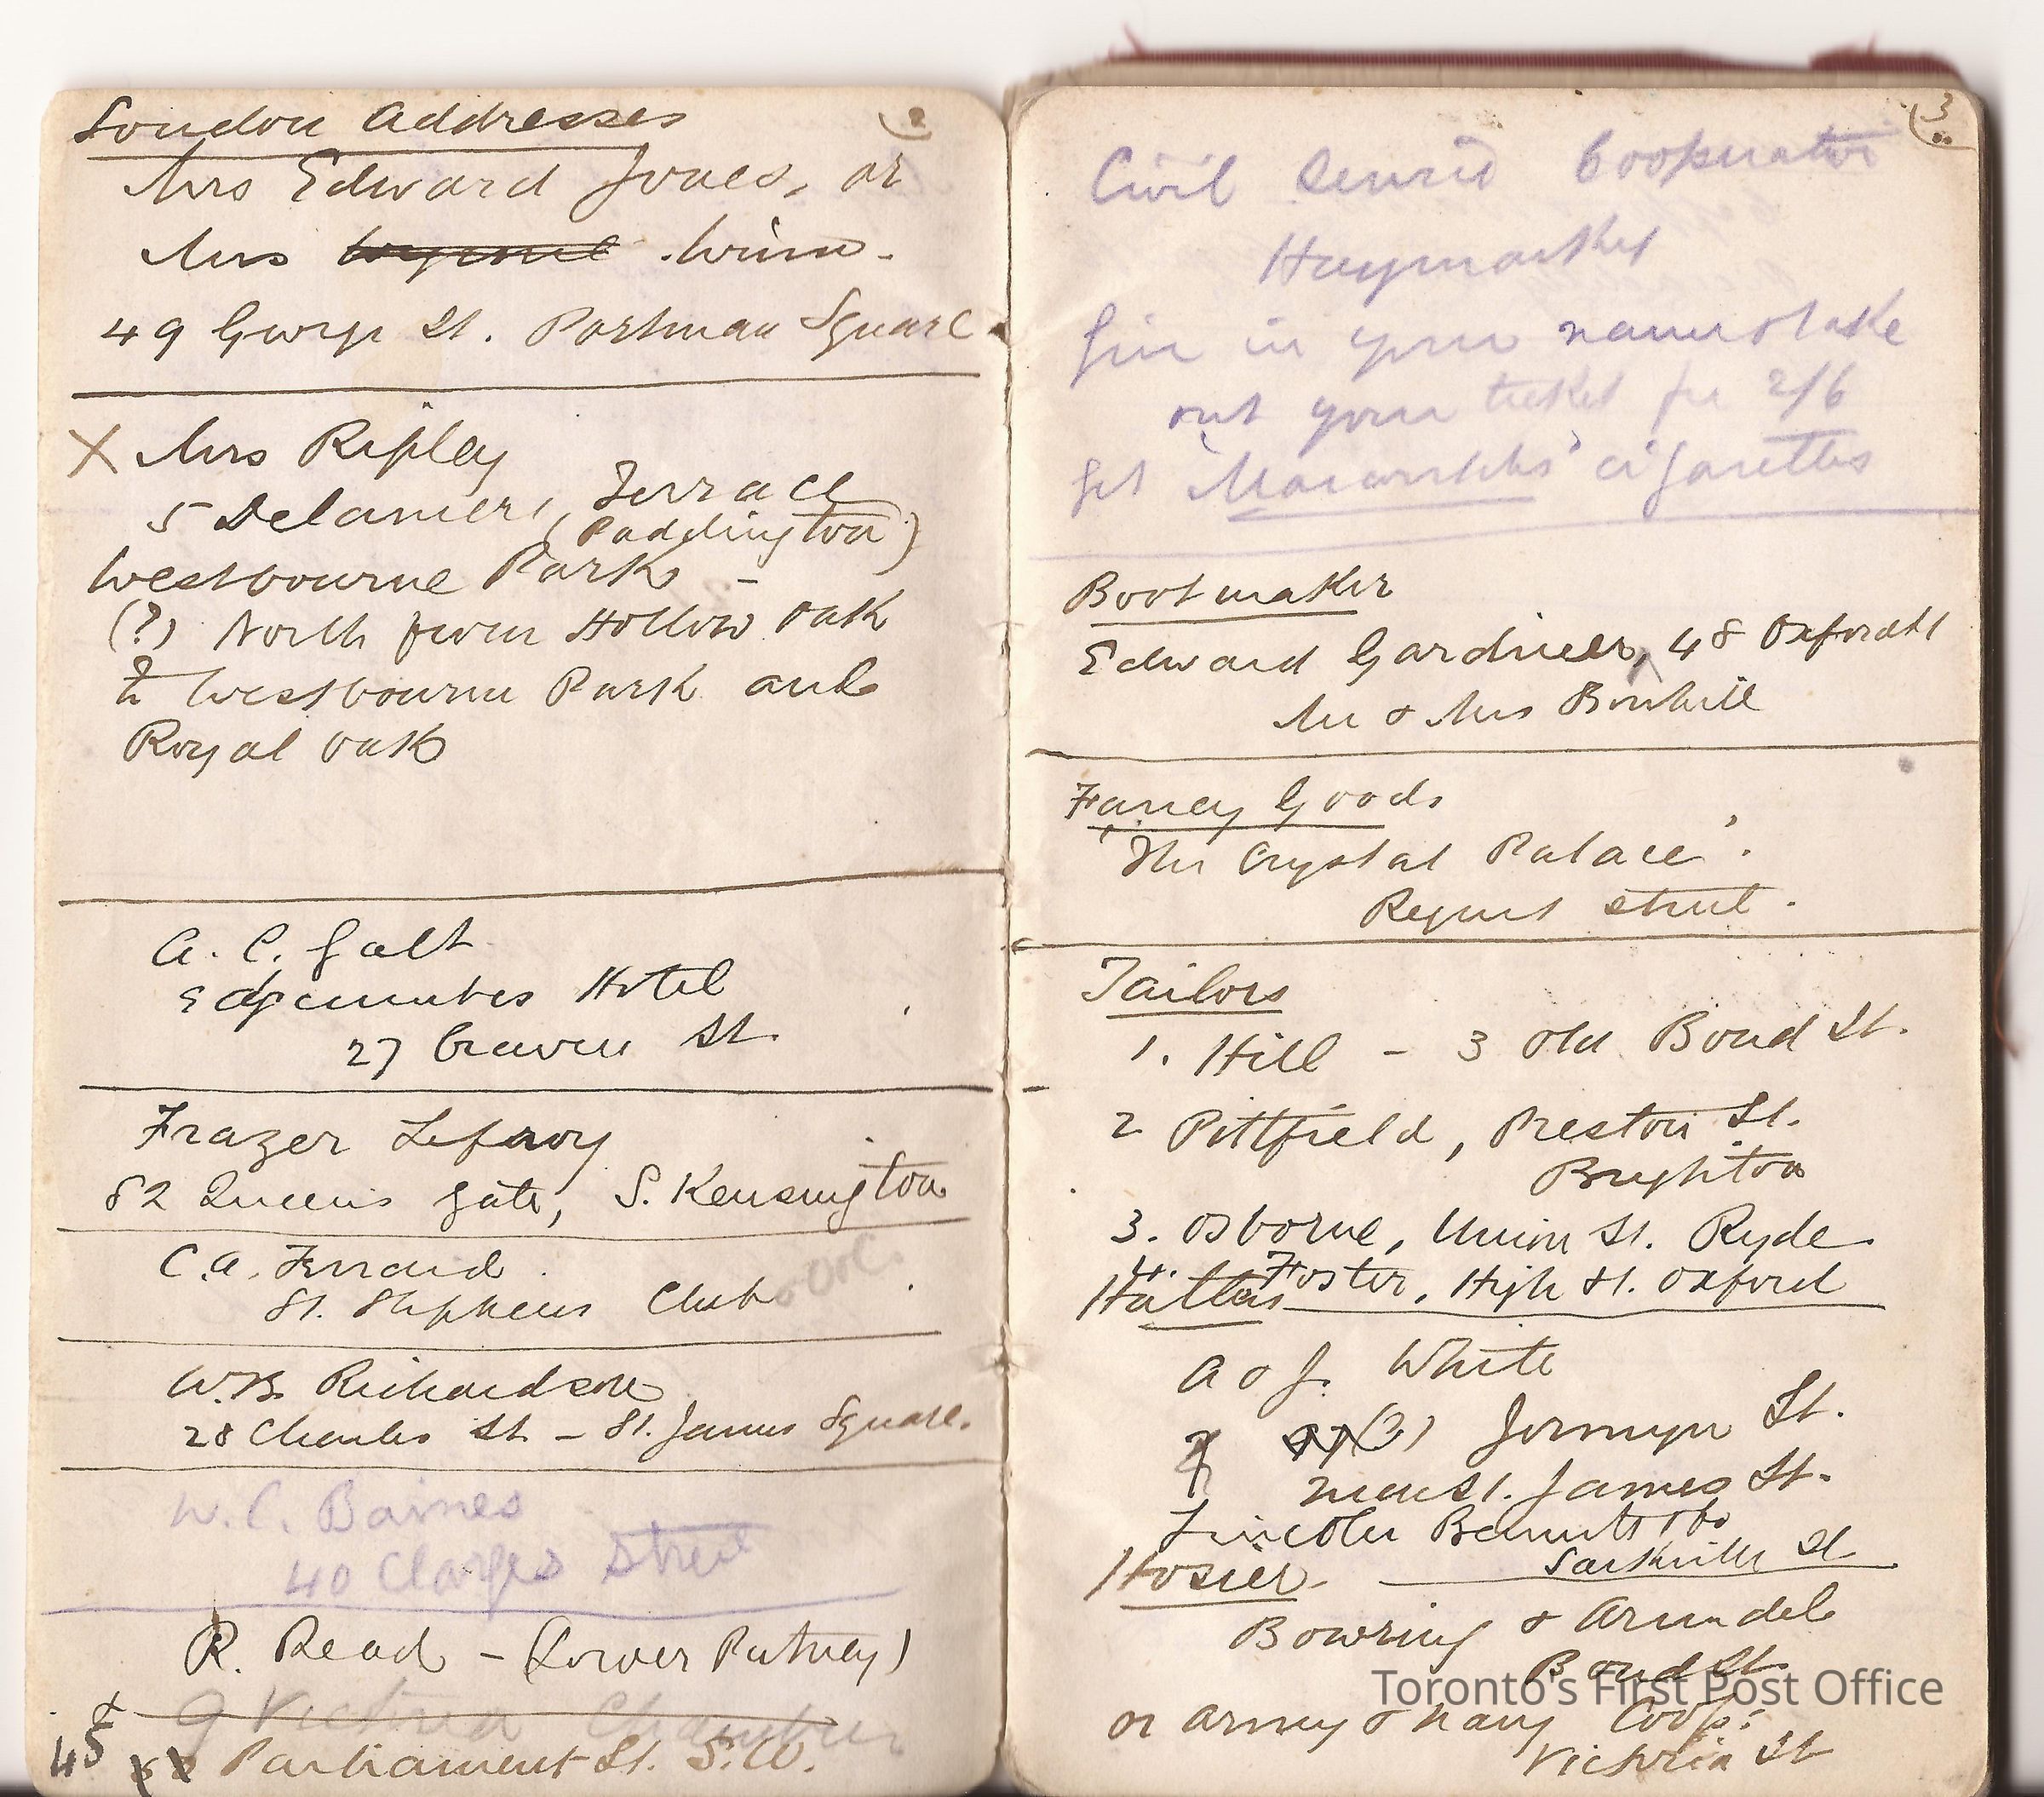 London Addresses
2
Mrs Edward Jones, or
Mrs Winn.
49 George St. Portman Square
X Mrs Ripley
5 Delamere Terrace
(Paddington)
Westbourne Park -
(?) North from Hollow Oak
to Westbourne Park and
Royal Oak
A. C. Galt
Hotel
27 Craven St.
Frazer Lefroy
82 Queens Gate, S. Kensington
C.A.
St. Stephens Club
W.B. Richardson
28 Charles St - St. James Square.
W. C. Baines
40 Clarges Street
R. Read - (Lower Putney)
9 Victoria Chambers
45 Parliament St. S.W.
3
Civil Service Cooperative
Haymarket
Give in your name & take
out your ticket for 2/6
get cigarettes
Bootmaker
Edward Gardiner, 48 Oxford St
Mr & Mrs
Fancy Goods
'The Crystal Palace'.
Regent Street.
Tailors
1. Hill - 3 Old Bond St.
2 Pittfield, Preston St.
Brighton
3. Osborne, Union St. Ryde
4. Foster, High St. Oxford
Hatters
A & J. White
(?) Jermyn St.
near St. James St.
Lincoln Bennett & Co
Sackville St
Hosier
Bowring & Arundel
Bond St.
or Army & Navy Coop:
Victoria St
Toronto's First Post Office